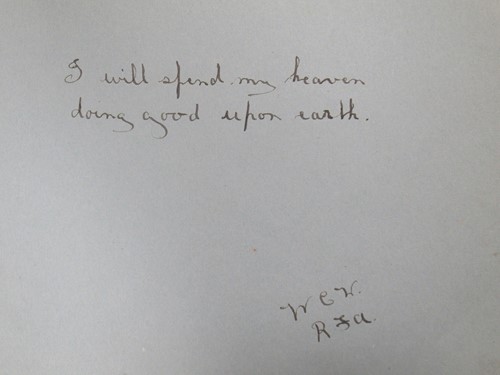 I will spend my heaven
doing good upon earth.
W C W.
R F A.